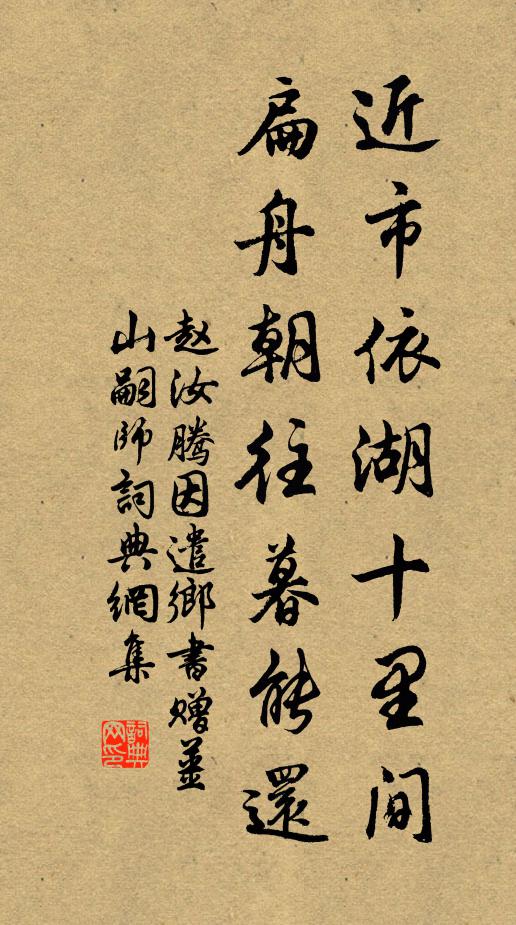 近市依湖十里间
扁舟朝往暮能還
赵汝腾因遣鄉書赠薑
山嗣师詞典網集
詞典网印